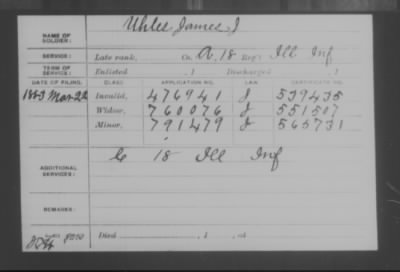 NAME OF SOLDIER: Uhles James J
SERVICE: Late rank, Co. A, 18 Reg't Ill Inf
TERM OF SERVICE: Enlisted , 1 Discharged , 1
DATE OF FILING. CLASS. APPLICATION NO. LAW. CERTIFICATE NO.
1883 Mar 22 Invalid, 476941 J 539435
Widow, 760076 J 551507
Minor, 791479 J 565731
ADDITIONAL SERVICES: G 18 Ill Inf
REMARKS:
Died , 1 , at